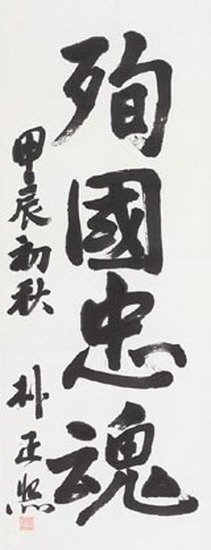 殉國忠魂
甲辰初秋 朴正熙